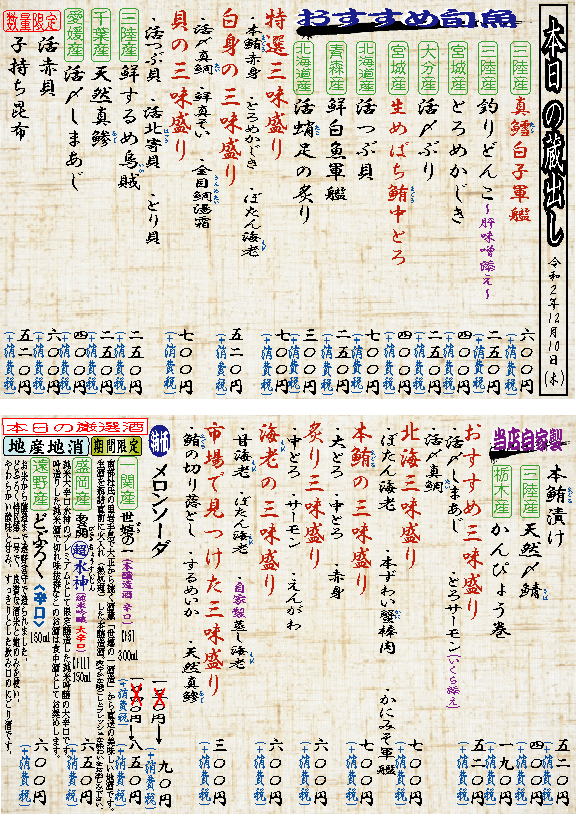 本日の蔵出し 令和2年12月10日(木)
おすすめ旬魚
三陸産 真鱈白子軍艦 六〇〇円(+消費税)
三陸産 釣りどんこ〜肝味噌添え〜 二五〇円(+消費税)
宮城産 とろめかじき 四〇〇円(+消費税)
大分産 活〆ぶり 二五〇円(+消費税)
宮城産 生めばち鮪中とろ 四〇〇円(+消費税)
北海道産 活つぶ貝 七〇〇円(+消費税)
青森産 鮮白魚軍艦 二五〇円(+消費税)
北海道産 活蛸足の炙り 三〇〇円(+消費税)
特選三味盛り 七〇〇円(+消費税)
・本鮪赤身 ・とろめかじき ・ぼたん海老
白身の三味盛り 五二〇円(+消費税)
・活〆真鯛 ・鮮真ぞい ・金目鯛湯霜
貝の三味盛り 七〇〇円(+消費税)
・活つぶ貝 ・活北寄貝 ・とり貝
三陸産 鮮するめ烏賊 二五〇円(+消費税)
千葉産 天然真鯵 二五〇円(+消費税)
愛媛産 活〆しまあじ 四〇〇円(+消費税)
数量限定
活赤貝 六〇〇円(+消費税)
子持ち昆布 五二〇円(+消費税)
当店自家製
本鮪漬け 五二〇円(+消費税)
三陸産 天然〆鯖 四〇〇円(+消費税)
栃木産 かんぴょう巻 一九〇円(+消費税)
おすすめ三味盛り 五二〇円(+消費税)
・活〆しまあじ ・とろサーモン(いくら添え)
・活〆真鯛
北海三味盛り 七〇〇円(+消費税)
・ぼたん海老 ・本ずわい蟹棒肉 ・かにみそ軍艦
本鮪の三味盛り 七〇〇円(+消費税)
・大とろ ・中とろ ・赤身
炙り三味盛り 六〇〇円(+消費税)
・中とろ ・サーモン ・えんがわ
海老の三味盛り 六〇〇円(+消費税)
・甘海老 ・ぼたん海老 ・自家製蒸し海老
市場で見つけた三味盛り 三〇〇円(+消費税)
・鮪の切り落とし ・するめいか ・天然真鯵
特価 メロンソーダ 一八〇円→九〇円(+消費税)
本日の厳選酒
地産地消
期間限定
一関産 世嬉の一(本醸造酒 辛口) 300ml 八五〇円(+消費税)
盛岡産 桜顔 超水神(純米吟醸 大辛口) 150ml 六五〇円(+消費税)
遠野産 どぶろく<辛口> 150ml 六〇〇円(+消費税)